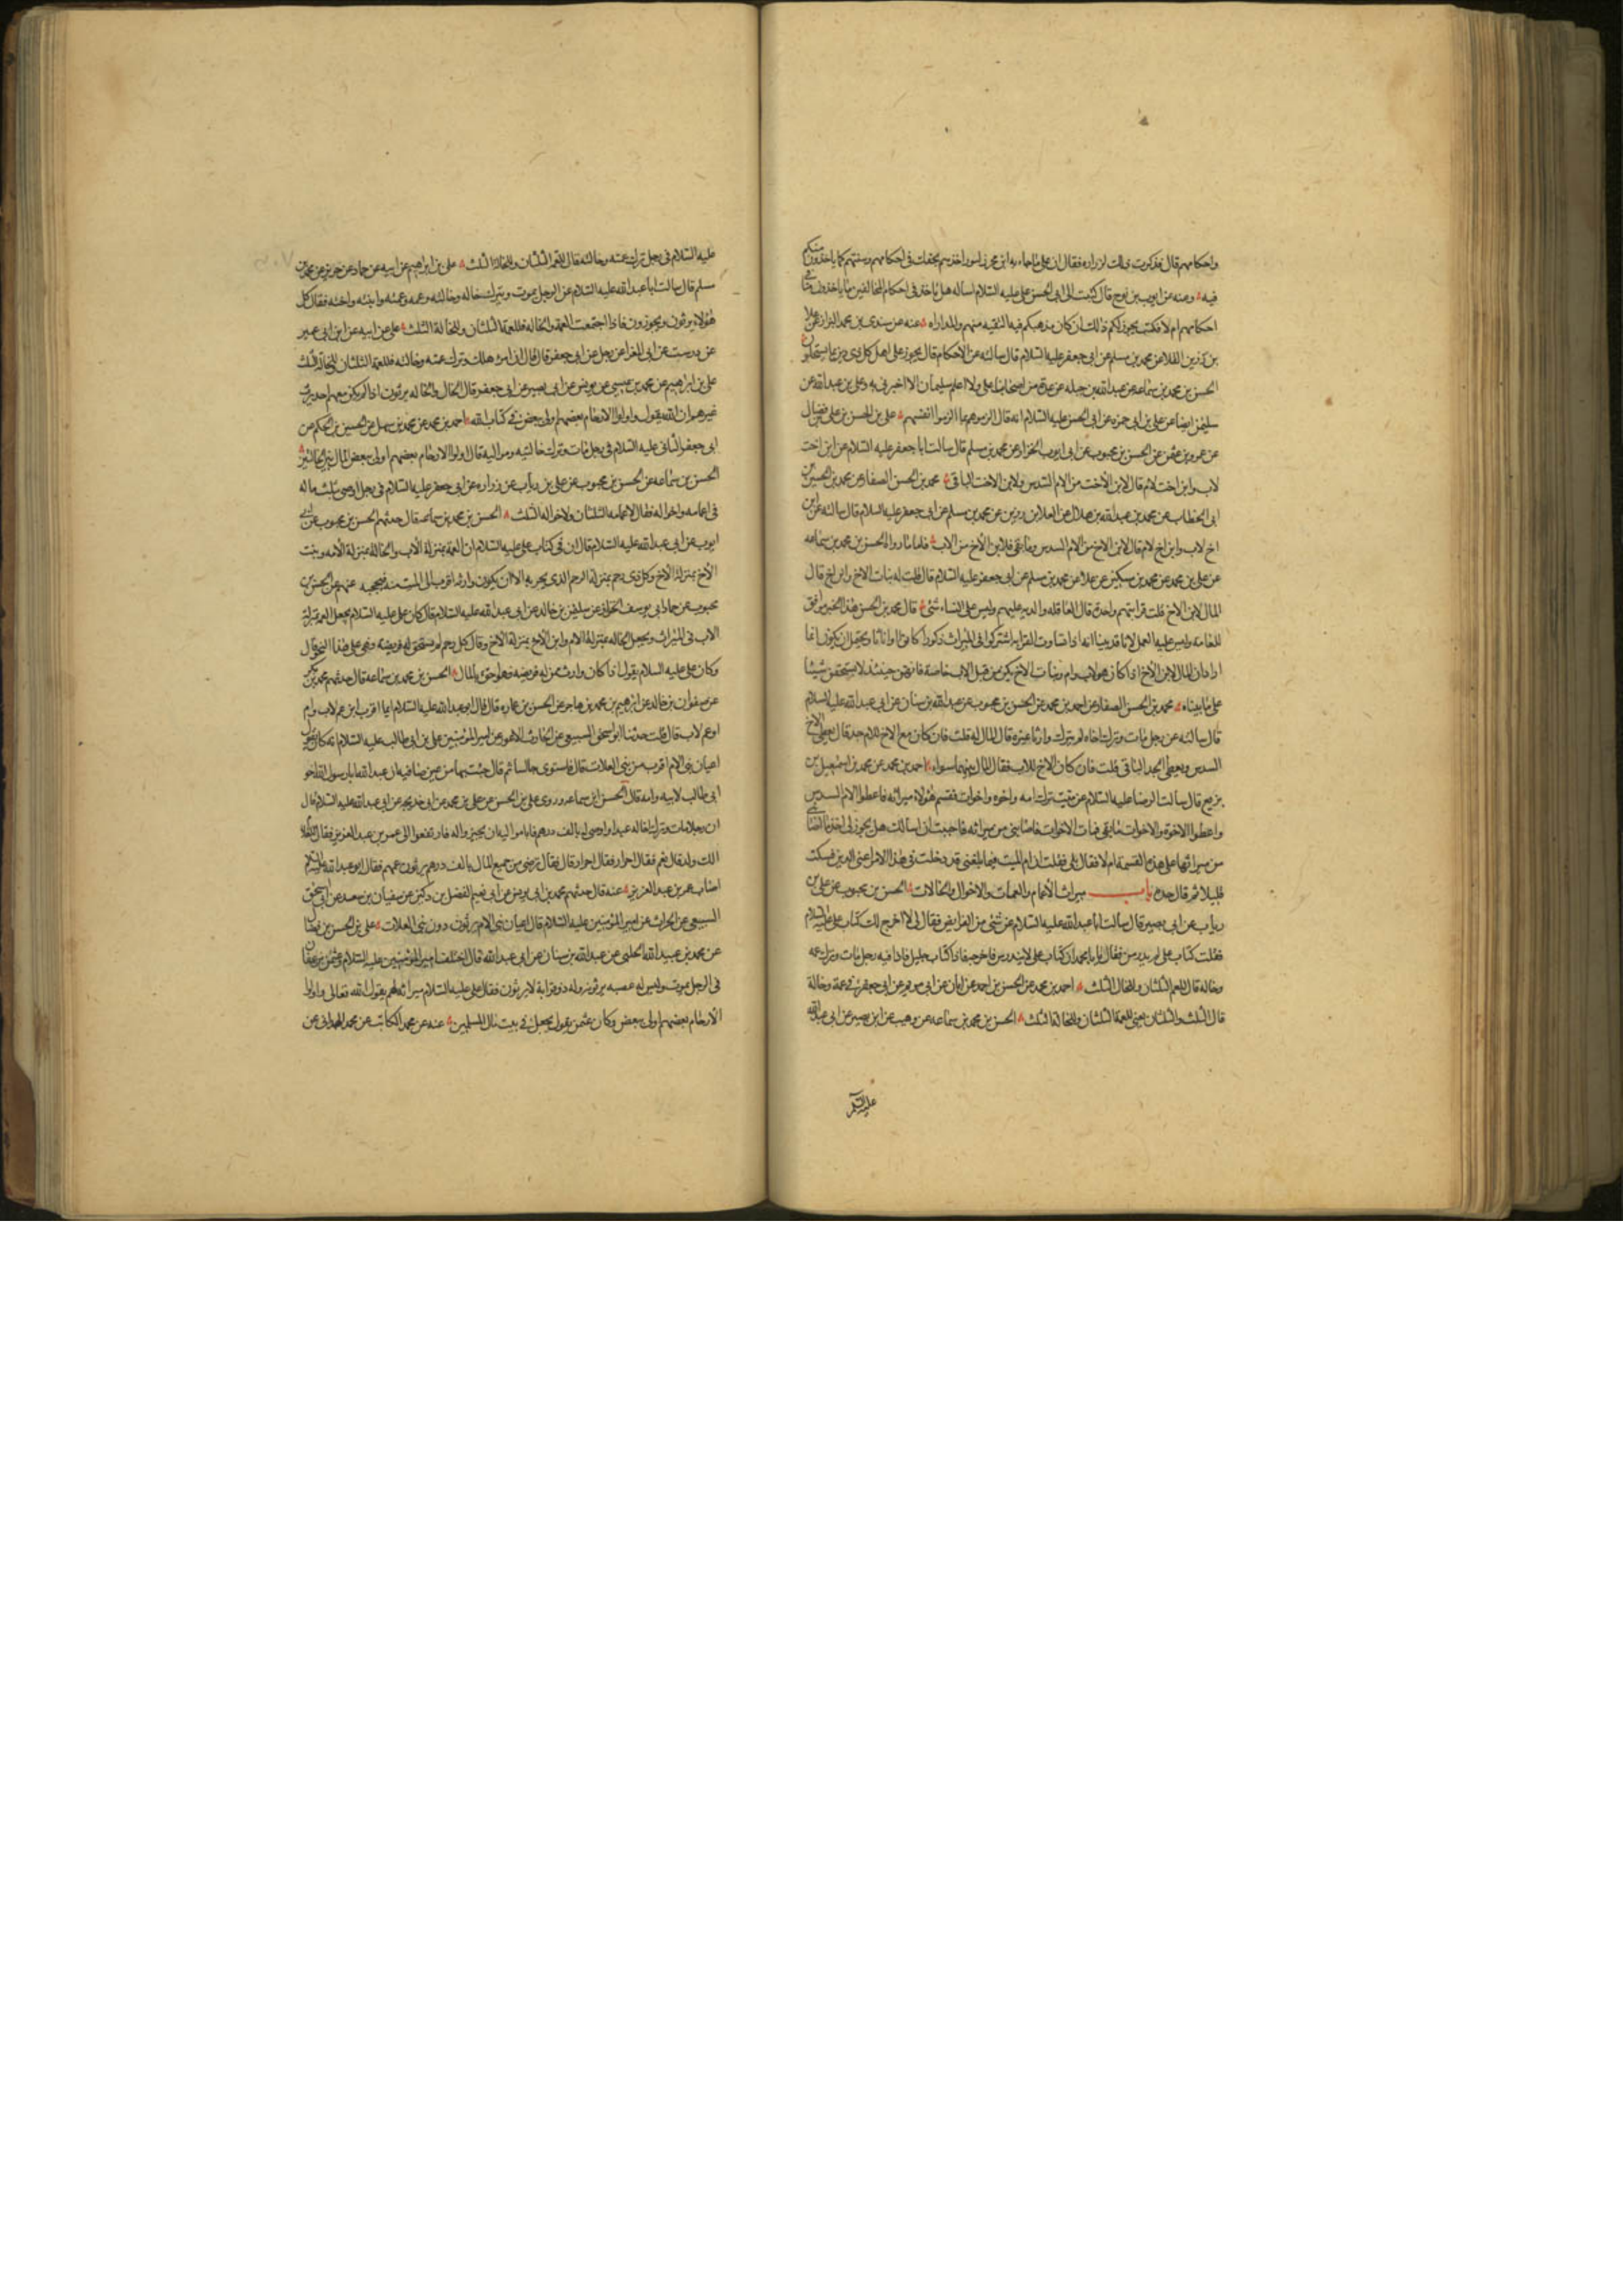 واحكامهم قال فذكرت ذلك لزراره فقال ان على ما جاء به ابن محرز لنورا خذهم بحقك فى احكامهم وسنتهم كما ياخذون منكم
فيه ومنه عن ايوب بن نوح قال كتبت الى ابى الحسن على عليه السلام اساله هل ناخذ فى احكام المخالفين ما ياخذون منا فى
احكامهم ام لا فكتب يجوز لكم ذلك ان كان مذهبكم فيه التقيه منهم والمداراه عنه عن سندى بن محمد البزاز عن علا
بن رزين القلا عن محمد بن مسلم عن ابى جعفر عليه السلام قال سالته عن الاحكام قال يجوز على اهل كل ذى دين بما يستحلون
الحسن بن محمد بن سماعه عن عبد الله بن جبله عن عدة من اصحابنا على ولا اعلم سليمان الا اخبرنى به وعلى بن عبد الله عن
سليمن ايضا عن على بن ابى حمزه عن ابى الحسن عليه السلام انه قال الزموهم بما الزموا انفسهم على بن الحسن بن على فضال
عن عمرو بن عثمن عن الحسن بن محبوب عن ابى ايوب الخزاز عن محمد بن مسلم قال سالت ابا جعفر عليه السلام عن ابن اخت
لاب وابن اخت لام قال لابن الاخت من الام السدس ولابن الاخت الباقى محمد بن الحسن الصفار عن محمد بن الحسين بن
ابى الخطاب عن محمد بن عبد الله بن هلال عن العلا بن رزين عن محمد بن مسلم عن ابى جعفر عليه السلام قال سالته عن ابن
اخ لاب وابن اخ لام قال لابن الاخ من الام السدس وما بقى فلابن الاخ من الاب فاما ما رواه الحسن بن محمد بن سماعه
عن على بن محمد عن محمد بن سكين عن علا عن محمد بن مسلم عن ابى جعفر عليه السلام قال قلت له بنات الاخ وابن اخ قال
المال لابن الاخ قلت قرابتهم واحدة قال العاقله والديه عليهم وليس على النساء شئ قال محمد بن الحسن هذا الخبر موافق
للعامه وليس عليه العمل لانا قد بينا انه اذا تساوت القرابه اشتركوا فى الميراث ذكورا كانوا او اناثا ويحتمل ان يكون انما
اراد ان المال لابن الاخ اذا كان هو لاب وام وبنات الاخ يكن من قبل الاب خاصة فانهن حينئذ لا يستحقن شيئا
على ما بيناه محمد بن الحسن الصفار عن احمد بن محمد عن الحسن بن محبوب عن عبد الله بن سنان عن ابى عبد الله عليه السلام
قال سالته عن رجل مات وترك اخاه لم يترك وارثا غيره قال المال له قلت فان كان مع الاخ للام جد قال يعطى الاخ
السدس ويعطى الجد الباقى قلت فان كان الاخ للاب فقال المال بينهما سواء احمد بن محمد عن محمد بن اسمعيل بن
بزيع قال سالت الرضا عليه السلام عن ميت ترك امه واخوه واخوات فقسم هؤلاء ميراثه فاعطوا الام السدس
واعطوا الاخوة والاخوات ما بقى فمات الاخوات فاصابنى من ميراثه فاحببت ان اسالك هل يجوز لى اخذ ما اصابنى
من ميراثها على هذه القسمة ام لا فقال بلى فقلت ان ام الميت فيما بلغنى قد دخلت فى هذا الامر اعنى الدين فسكت
قليلا ثم قال خذه باب ميراث الاعمام والعمات والاخوال والخالات الحسن بن محبوب عن على بن
رياب عن ابى بصير قال سالت ابا عبد الله عليه السلام عن شئ من الفرايض فقال لى الا اخرج لك كتاب على عليه السلام
فقلت كتاب على لم يدرس فقال يا با محمد ان كتاب على لا يندرس فاخرجه فاذا كتاب جليل فاذا فيه رجل مات وترك عمه
وخاله قال للعم الثلثان وللخال الثلث احمد بن محمد عن الحسن بن احمد عن ابان عن ابى مريم عن ابى جعفر فى عمة وخالة
قال الثلث والثلثان يعنى للعمة الثلثان وللخالة الثلث الحسن بن محمد بن سماعه عن وهيب عن ابى بصير عن ابى عبد الله
عليه السلم
عليه السلام فى رجل ترك عمته وخالته قال للعمة الثلثان وللخالة الثلث على بن ابراهيم عن ابيه عن حماد عن حريز عن محمد بن
مسلم قال سالت ابا عبد الله عليه السلام عن الرجل يموت ويترك خاله وخالته وعمه وعمته وابنته واخته فقال كل
هؤلاء يرثون ويحوزون فاذا اجتمعت العمة والخاله فللعمة الثلثان وللخالة الثلث على عن ابيه عن ابن ابى عمير
عن درست عن ابى المغرا عن رجل عن ابى جعفر قال قال ان امرؤ هلك وترك عمته وخالته فللعمة الثلثان وللخالة الثلث
على بن ابراهيم عن محمد بن عيسى عن يونس عن ابى بصير عن ابى جعفر قال الخال والخاله يرثون اذا لم يكن معهم احد يرث
غيرهم ان الله يقول واولوا الارحام بعضهم اولى ببعض فى كتاب الله احمد بن محمد عن محمد بن سهل عن الحسين بن الحكم عن
ابى جعفر الثانى عليه السلام فى رجل مات وترك خالتيه ومواليه قال اولوا الارحام بعضهم اولى ببعض المال بين الخالتين
الحسن بن سماعه عن الحسن بن محبوب عن على بن رياب عن زراره عن ابى جعفر عليه السلام فى رجل اوصى بثلث ماله
فى اعمامه واخواله فقال لاعمامه الثلثان ولاخواله الثلث الحسن بن محمد بن سماعه قال حدثهم الحسن بن محبوب عن ابى
ايوب عن ابى عبد الله عليه السلام قال ان فى كتاب على عليه السلام ان العمة بمنزلة الاب والخالة بمنزلة الام وبنت
الاخ بمنزلة الاخ وكل ذى رحم بمنزلة الرحم الذى يجر به الا ان يكون وارث اقرب الى الميت منه فيحجبه عنهم عن الحسن بن
محبوب عن حماد ابى يوسف الخزاز عن سليمن بن خالد عن ابى عبد الله عليه السلام قال كان على عليه السلام يجعل العمة بمنزلة
الاب فى الميراث ويجعل الخاله بمنزلة الام وابن الاخ بمنزلة الاخ وقال كل رحم لم يستحق له فريضة فهى على هذا النحو قال
وكان على عليه السلام يقول اذا كان وارث ممن له فريضه فهو احق بالمال الحسن بن محمد بن سماعه قال حدثهم محمد بن بكر
عن صفوان بن خالد عن ابرهيم بن محمد بن مهاجر عن الحسن بن عماره قال قال ابو عبد الله عليه السلام ايما اقرب ابن عم لاب وام
او عم لاب قال قلت حدثنا ابو اسحق السبيعى عن الحارث الاعور عن امير المؤمنين على بن ابى طالب عليه السلام انه كان يقول
اعيان بنى الام اقرب من بنى العلات قال فاستوى جالسا ثم قال جئت بها من عين صافيه ان عبد الله ابا رسول الله اخو
ابى طالب لابيه وامه قال الحسن ابن سماعه وروى على بن الحسن عن على بن محمد عن ابى خديجه عن ابى عبد الله عليه السلام قال
ان رجلا مات وترك اخا له عبدا واوصى له بالف درهم فابى مواليه ان يجيزوا له فارتفعوا الى عمر بن عبد العزيز فقال للغلام
الك ولد قال نعم فقال احرار فقال احرار قال فقال ترضى من جميع المال بالف درهم يرثون عمهم فقال ابو عبد الله عليه السلام
اصاب عمر بن عبد العزيز عنه قال حدثهم محمد بن ابى يونس عن ابى نعيم الفضل بن دكين عن سفيان بن سعيد عن ابى اسحق
السبيعى عن الحارث عن امير المؤمنين عليه السلام قال اعيان بنى الام يرثون دون بنى العلات على بن الحسن بن فضال
عن محمد بن عبيد الله الحلبى عن عبد الله بن سنان عن ابى عبد الله قال اختلف امير المؤمنين عليه السلام وعثمن بن عفان
فى الرجل يموت وليس له عصبه يرثونه وله ذو قرابة لا يرثون فقال على عليه السلام ميراثه لهم يقول الله تعالى واولوا
الارحام بعضهم اولى ببعض وكان عثمن يقول يجعل فى بيت مال المسلمين عنه عن محمد الكاتب عن محمد الهمدانى عن